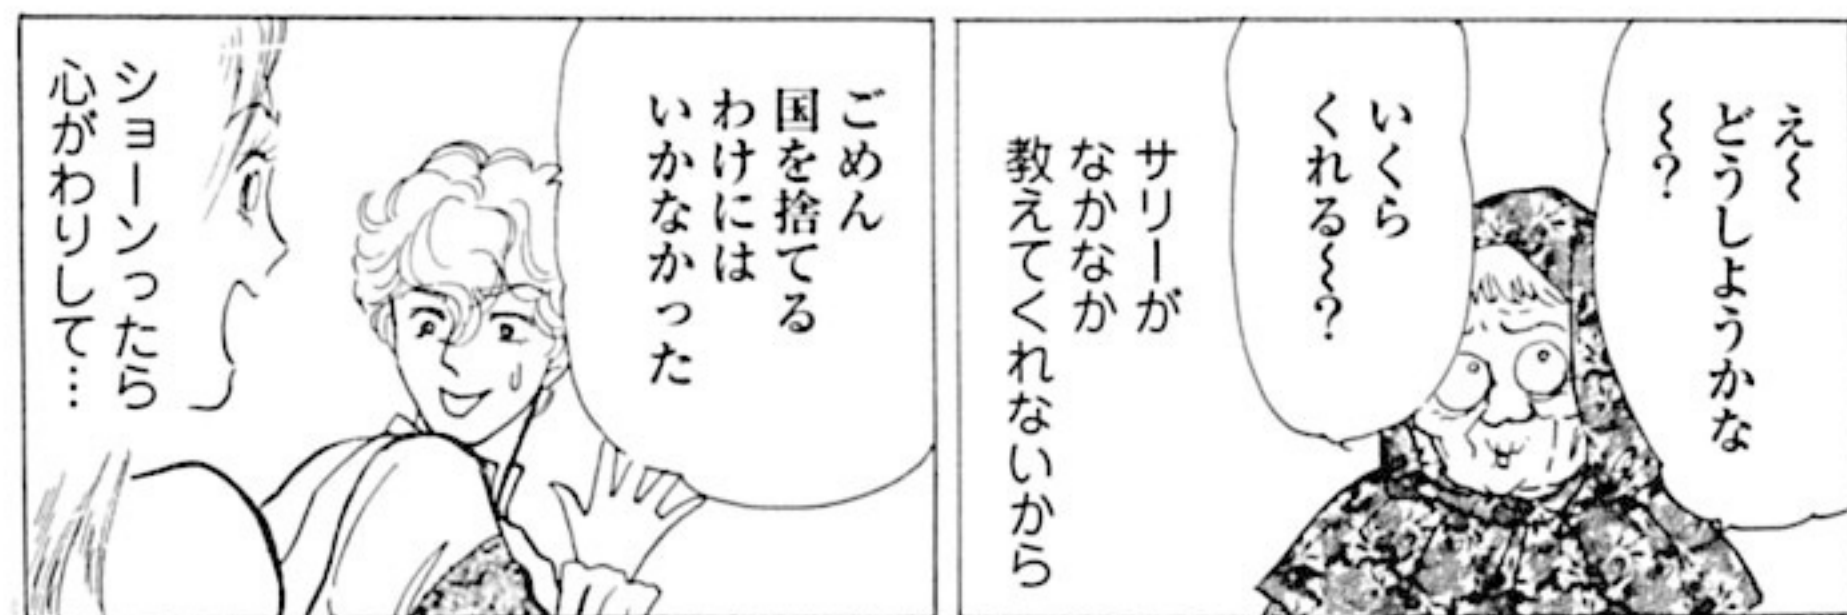 え〜
どうしようかな
〜?
いくら
くれる〜?
サリーが
なかなか
教えてくれないから
ごめん
国を捨てる
わけには
いかなかった
ショーンったら
心がわりして…